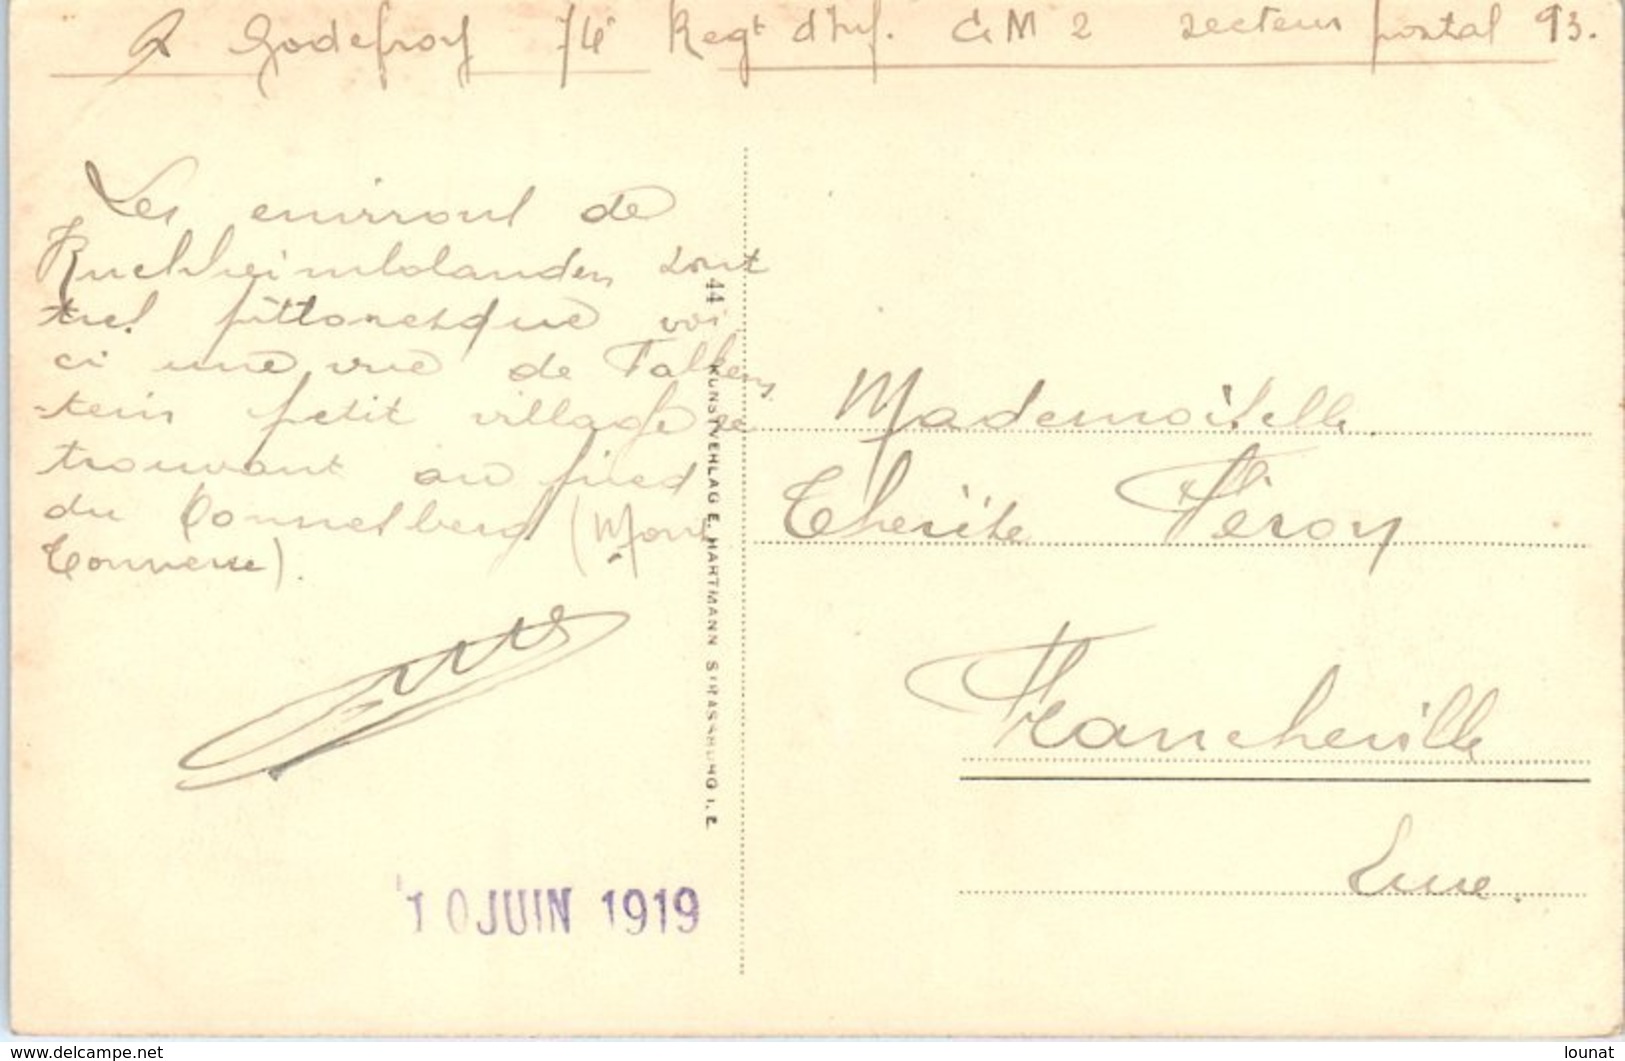 Godefroy 74e Regt d'Inf. C M 2 secteur postal 93.
Les environs de
Kirchheimbolanden sont
très pittoresque voi
ci une vue de Falkens
-tein petit village se
trouvant au pied
du Donnesberg (Mont
Tonnerre).
10 JUIN 1919
44 KUNSTVERLAG E. HARTMANN STRASSBURG i. E.
Mademoiselle
Therèse Féron
Francheville
Eure.
www.delcampe.net
lounat